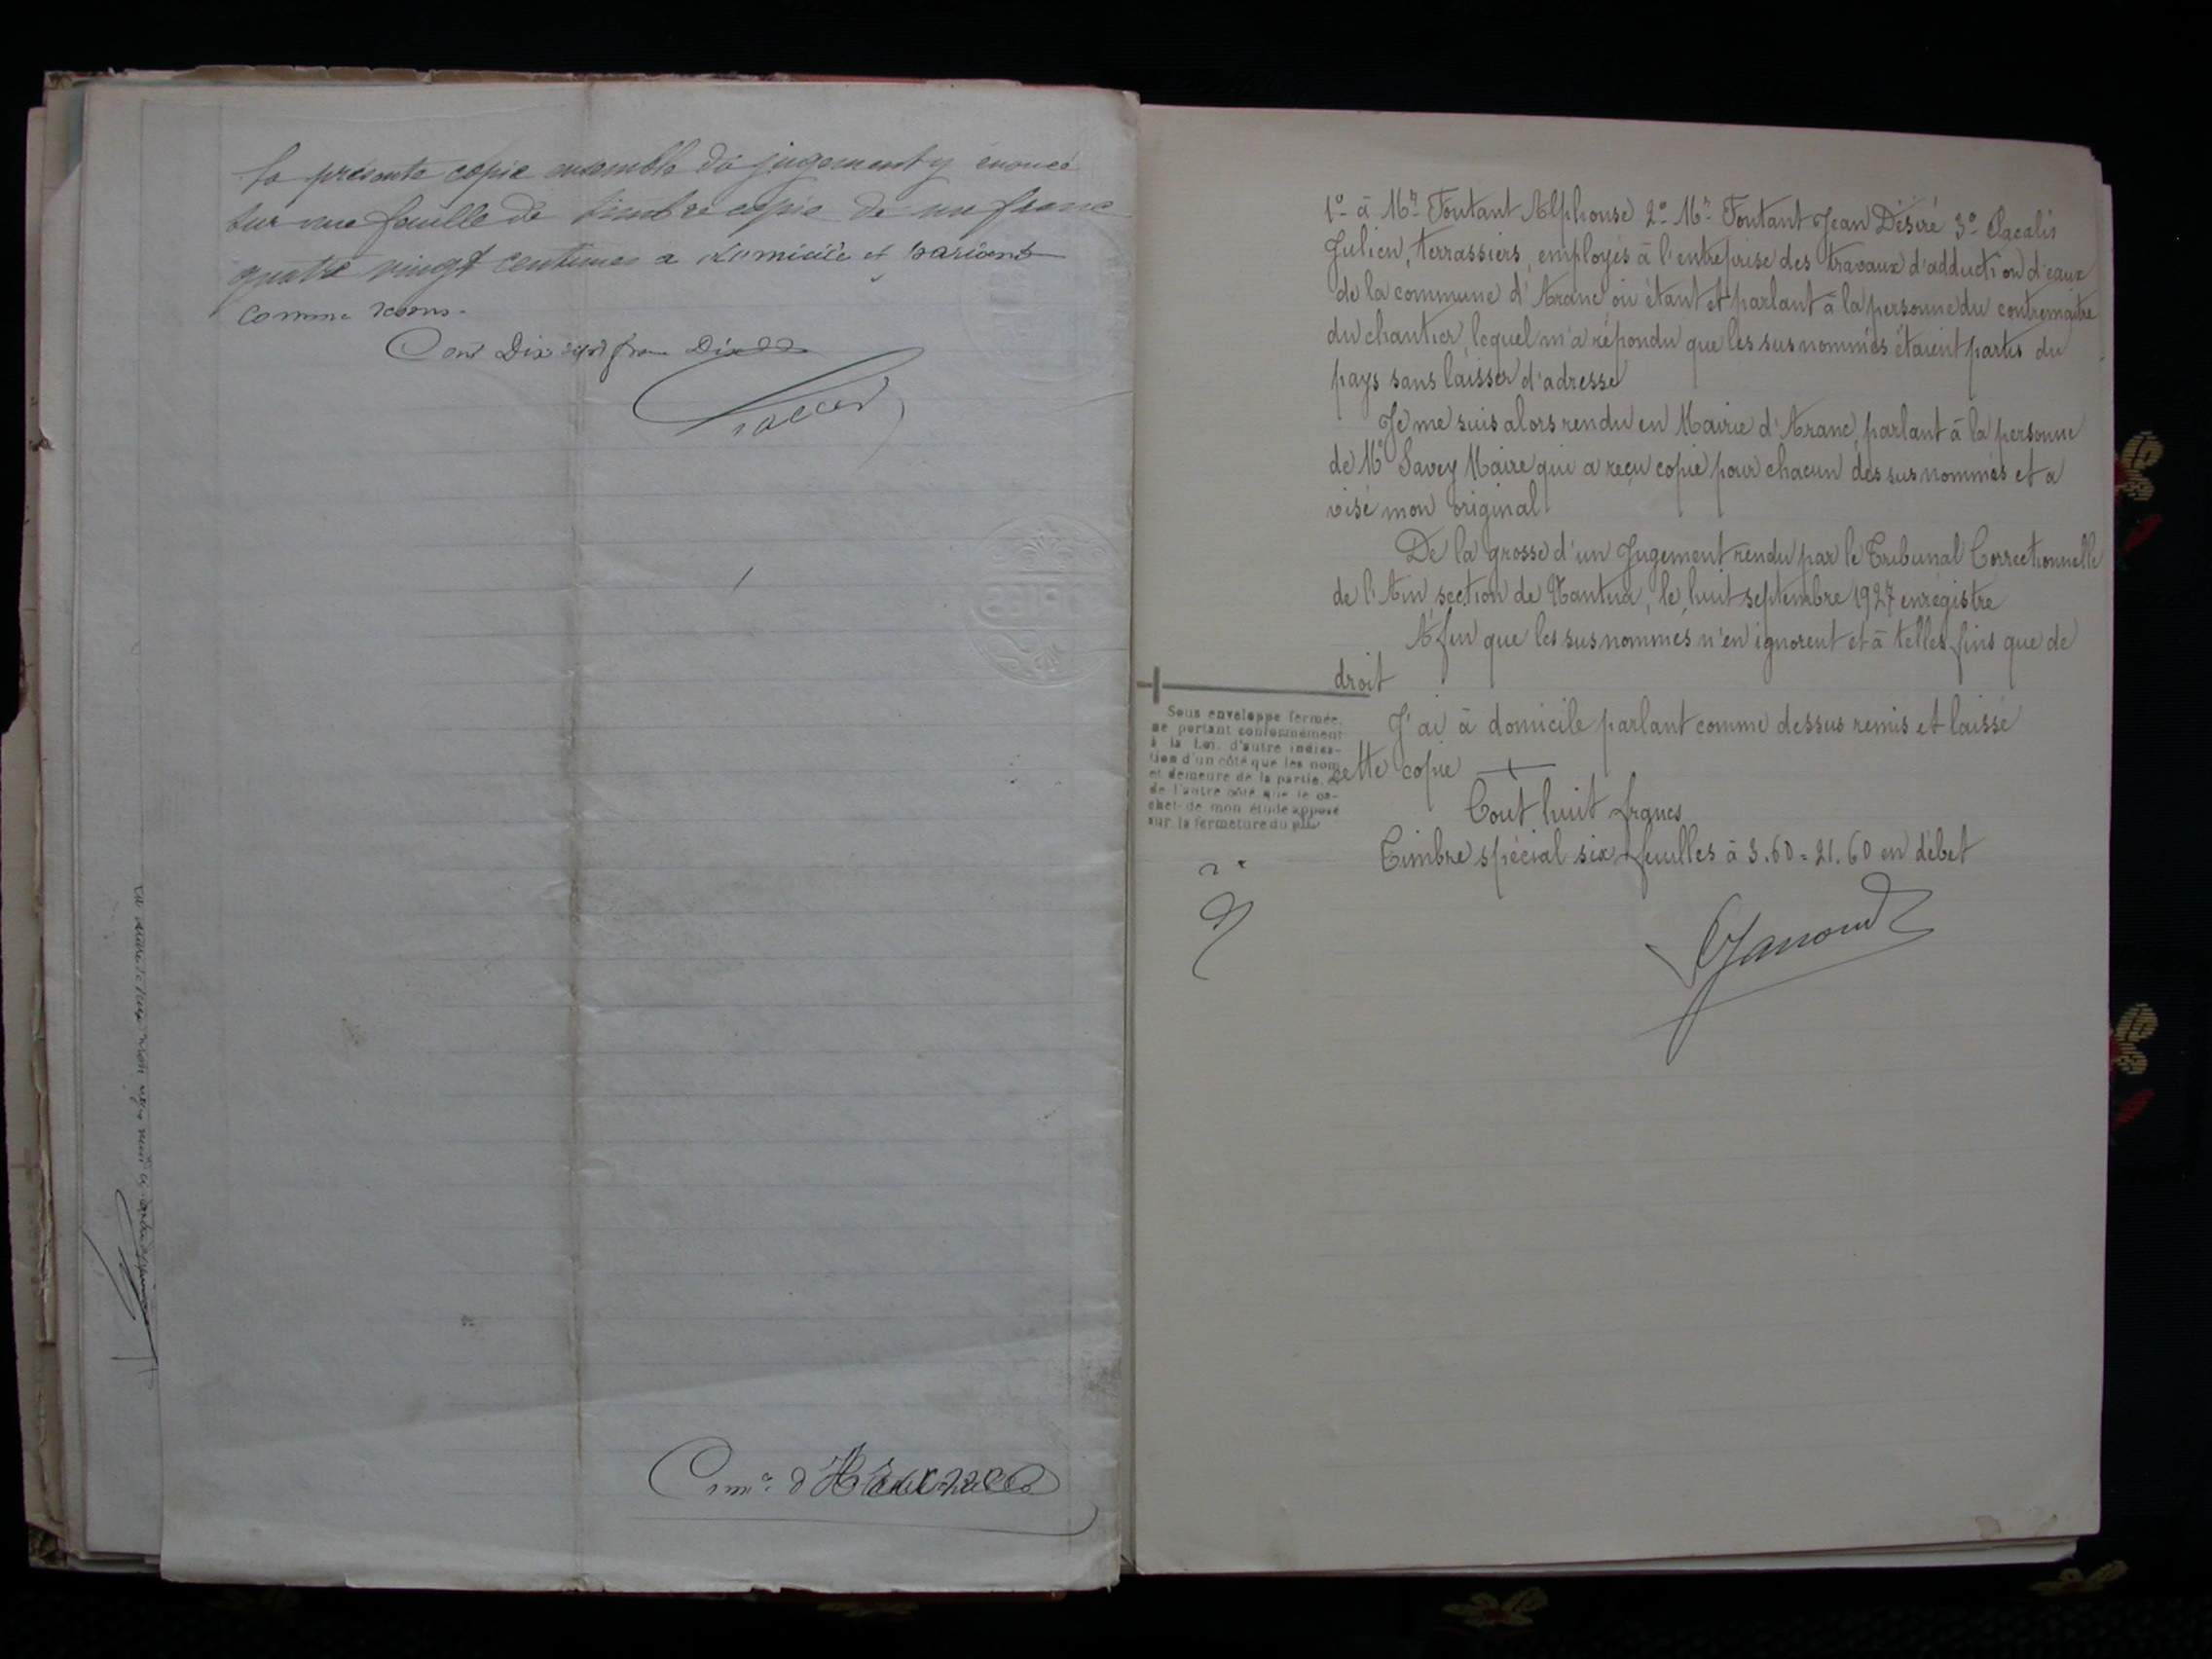 la présente copie ensemble du jugement y énoncé
sur une feuille de timbre copie de un franc
quatre vingt centimes a domicile et parlant
comme
Cout Dix sept francs Dix
1° à Mr Toutant Alphonse 2° Mr Toutant Jean Désiré 3° Pacalis
Julien, terrassiers, employés à l'entreprise des travaux d'adduction d'eaux
de la commune d'Aranc où étant et parlant à la personne du contremaitre
du chantier, lequel m'a répondu que les sus nommés étaient partis du
pays sans laisser d'adresse
Je me suis alors rendu en Mairie d'Aranc, parlant à la personne
de Mr Savey Maire qui a reçu copie pour chacun des sus nommés et a
visé mon original
De la grosse d'un Jugement rendu par le Tribunal Correctionnelle
de l'Ain, section de Nantua, le huit septembre 1927 enregistre
Afin que les sus nommés n'en ignorent et à telles fins que de
droit
J'ai à domicile parlant comme dessus remis et laissé
cette copie
Sous enveloppe fermée,
ne portant conformément
à la Loi, d'autre indica-
tion d'un côté que les nom
et demeure de la partie, et
de l'autre côté que le ca-
chet de mon étude apposé
sur la fermeture du pli
Cout huit francs
Timbre spécial six feuilles à 3.60 = 21.60 en débet